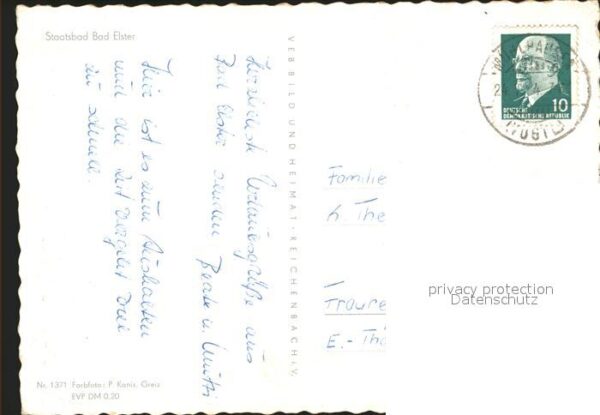 Staatsbad Bad Elster
Herzlichste Urlaubsgrüße aus
Bad Elster senden Beate u. Mutti
Hier ist es zum Aushalten
und die Zeit vergeht viel
zu schnell.
VEB BILD UND HEIMAT · REICHENBACH i. V.
Nr. 1371 Farbfoto: P. Kanis, Greiz
EVP DM 0,20
10
DEUTSCHE
DEMOKRATISCHE REPUBLIK
Familie
K. The
Traure
E.-Thä
privacy protection
Datenschutz